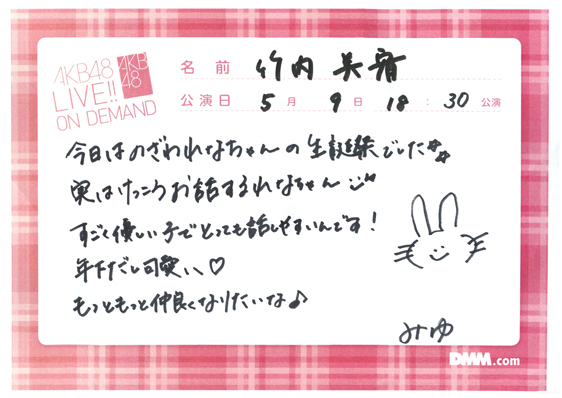 AKB48
LIVE!!
ON DEMAND
AKB
48
名前 竹内美宥
公演日 5月9日 18:30公演
今日はのざわれなちゃんの生誕祭でした
実はけっこうお話するれなちゃん
すごく優しい子でとっても話しやすいんです!
年下だし可愛い♡
もっともっと仲良くなりたいな♪
みゆ
DMM.com